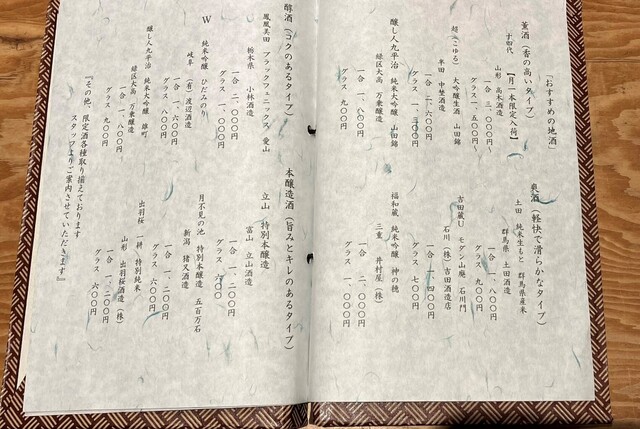 「おすすめの地酒」
薫酒（香の高いタイプ）
十四代 【月一本限定入荷】
山形 高木酒造
一合 三、〇〇〇円～
グラス 一、五〇〇円～
超（こゆる） 大吟醸生酒 山田錦
半田 中埜酒造
一合 二、六〇〇円
グラス 一、三〇〇円
醸し人九平治 純米大吟醸 山田錦
緑区大高 万乗醸造
一合 一、八〇〇円
グラス 九〇〇円
爽酒（軽快で滑らかなタイプ）
土田 純米生もと 群馬県産米
群馬県 土田酒造
一合 一、八〇〇円
グラス 九〇〇円
吉田蔵U モダン山廃 石川門
石川（株）吉田酒造店
一合 一、四〇〇円
グラス 七〇〇円
福和蔵 純米吟醸 神の穂
三重 井村屋（株）
一合 二、〇〇〇円
グラス 一、〇〇〇円
醇酒（コクのあるタイプ）
鳳凰美田 ブラックフェニックス 愛山
栃木県 小林酒造
一合 二、〇〇〇円
グラス 一、〇〇〇円
W 純米吟醸 ひだみのり
岐阜 （有）渡辺酒造
一合 一、六〇〇円
グラス 八〇〇円
醸し人九平治 純米大吟醸 雄町
緑区大高 万乗醸造
一合 一、八〇〇円
グラス 九〇〇円
本醸造酒（旨みとキレのあるタイプ）
立山 特別本醸造
富山 立山酒造
一合 一、二〇〇円
グラス 六〇〇
月不見の池 特別本醸造 五百万石
新潟 猪又酒造
一合 一、二〇〇円
グラス 六〇〇円
出羽桜 一耕 特別純米
山形 出羽桜酒造（株）
一合 一、二〇〇円
グラス 六〇〇円
『その他、限定酒各種取り揃えております
スタッフよりご案内させていただきます』